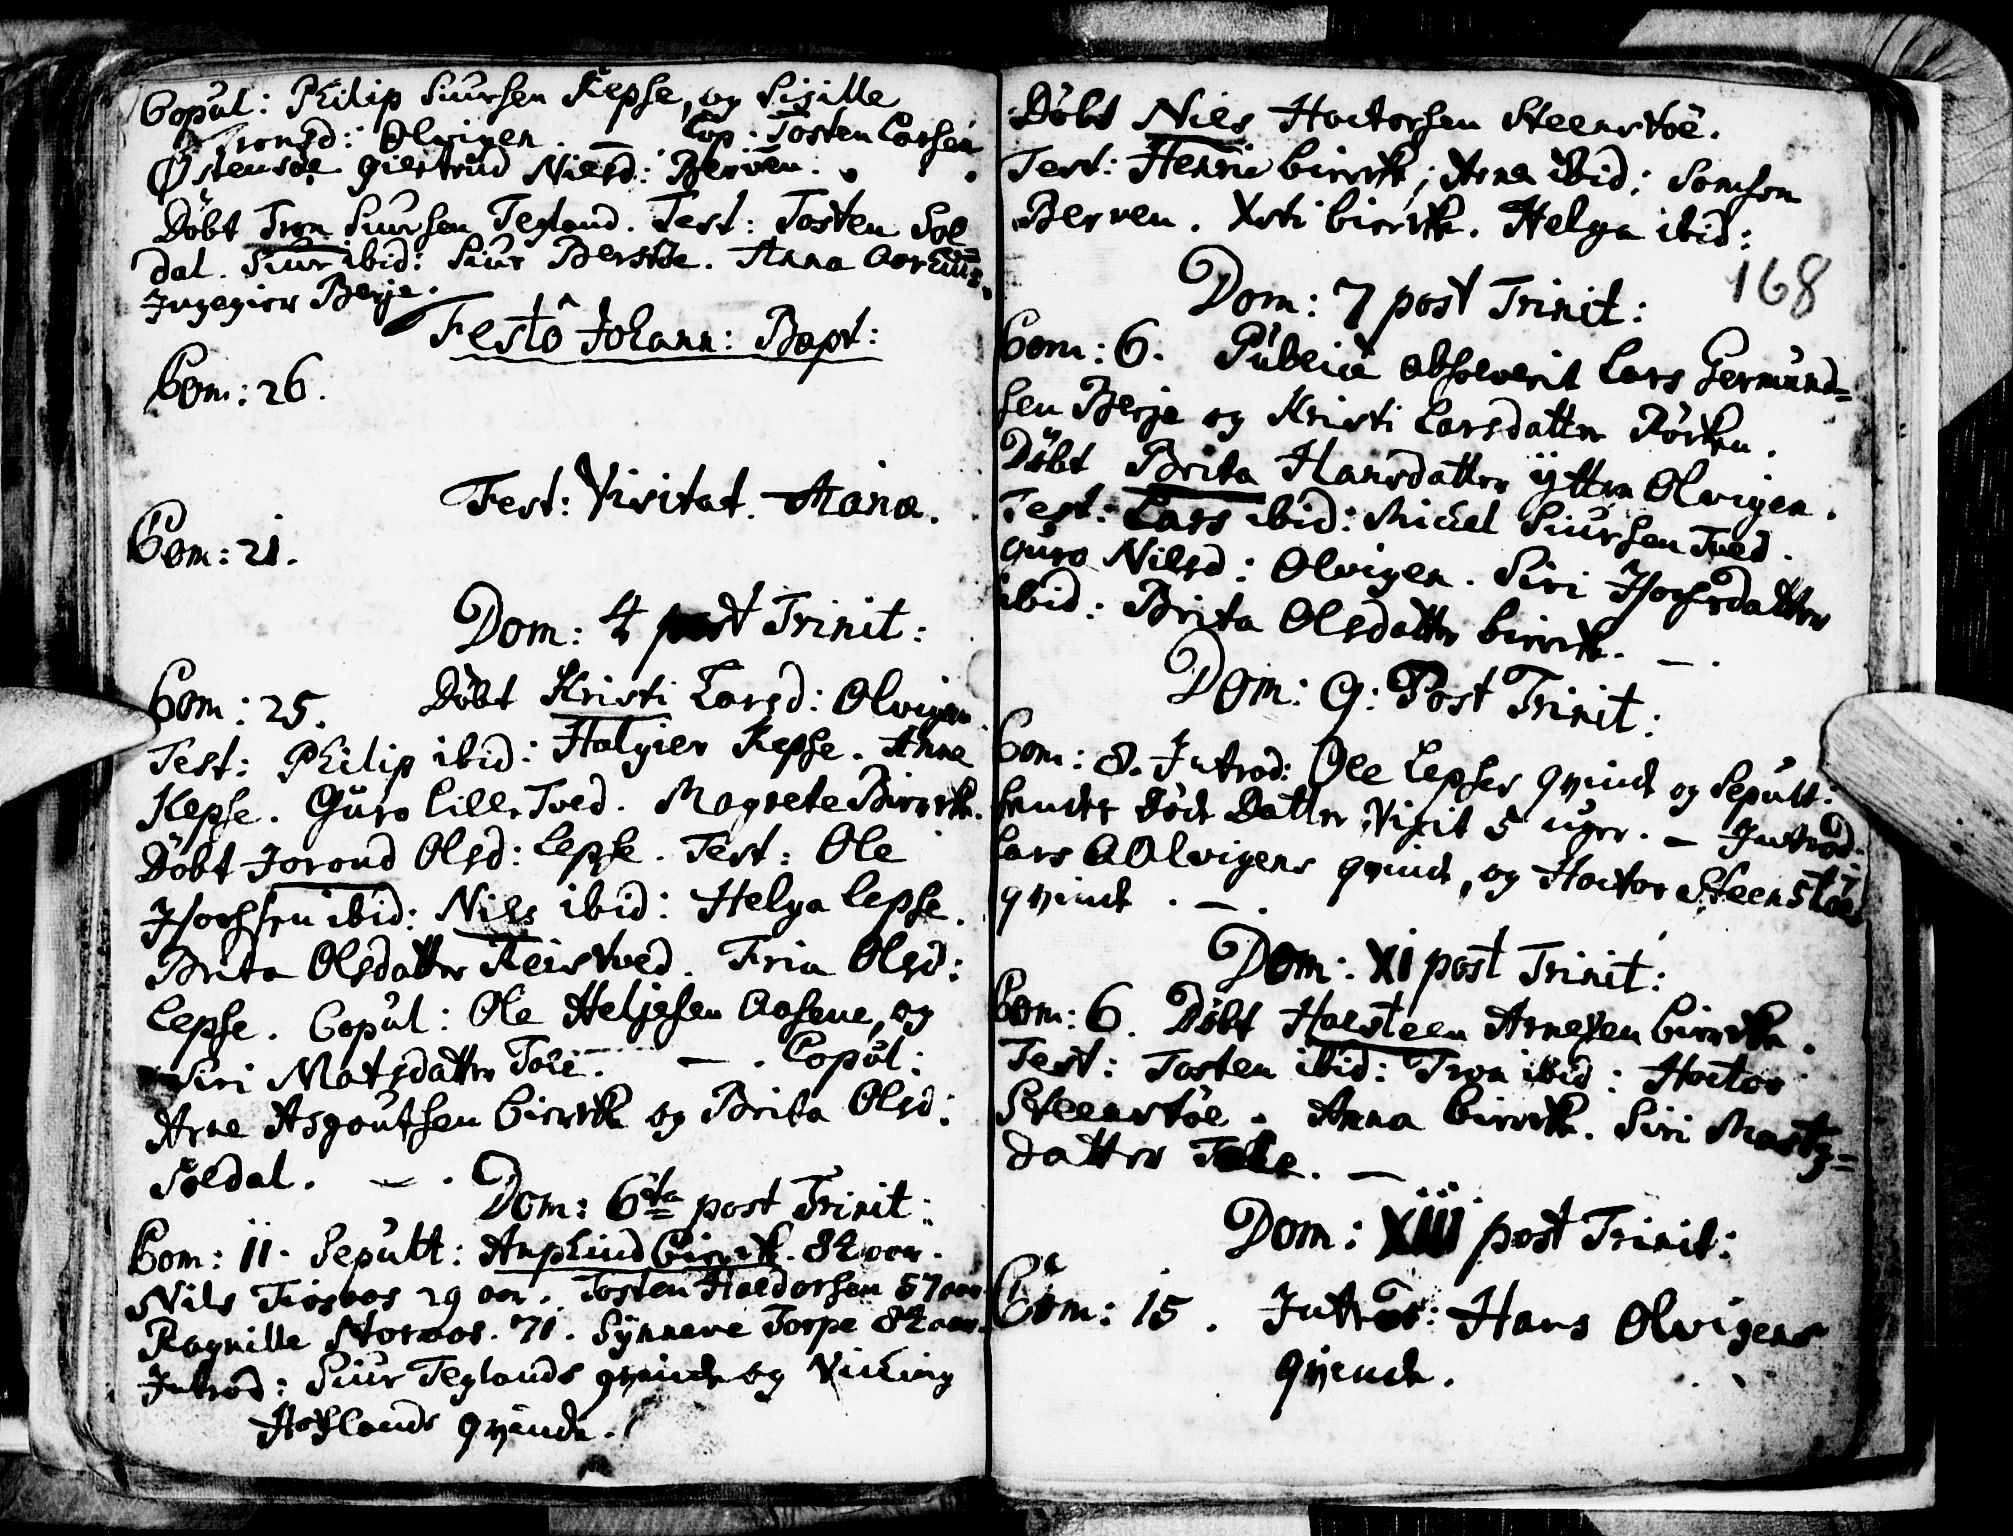 Copul: Philip Siursen Kepse, og Sigille
Tronsd: Olvigen. — Cop. Tosten Larsen
Østensøe giertrud Nielsd: Berven.
Döbt Tron Siursen Tegland. Test: Tosten Soldal.
Siur ibid: Siur Berske. Anna Aarhuus.
Ingegier Berje.
Festô Johann: Bapt:
Com: 26.
Fest: Visitat. Maria.
Com: 21.
Dom: 4 post Trinit:
Com: 25. Döbt Kristi Larsd: Olvigen.
Test: Philip ibid: Halgier Kepse. Anne
Kepse. Guro lille Tved. Magrete Birvik.
Döbt Jorond Olsd: Lepse. Test: Ole
Isachsen ibid: Nils ibid: Helga Lepse.
Brita Olsdatter Feistved. Fria Olsd:
Lepse. Copul: Ole Heljesen Aasene, og
Siri Matsdatter Tolé. — . Copul:
Arne Asgoutsen Birvik og Brita Olsd:
Soldal. — .
Dom: 6ta post Trinit:
Com: 11. Sepult: Amplund Birvik. 82 aar.
Nils Tiosaas 29 aar. Tosten Haldorsen 57 aar
Ragnille Noraas. 71. Synneve Torpe 82 aar.
Introd: Siur Teglands qvinde og Viching
Axlands qvinde.
Döbt Niels Hoctorsen Steenstöe.
Test: Henric birvik; Arne ibid; Somson
Berven. Xsti birvik. Helga ibid:
168
Dom: 7 post Trinit:
Com: 6. Publicè absolverit Lars Germund=
sen Berje og Kristi Larsdatter Rörken.
Döbt Brita Hansdatter ÿtter Olvigen.
Test: Lars ibid: Michel Siursen Tved.
Guro Nilsd: Olvigen. Siri Isachsdatter
ibid: Brita Olsdatter birvik. — .
Dom: 9: Post Trinit:
Com: 8. Introd: Ole Lepses qvinde og Sepult:
hendes död Datter, Vixit 5 uger. — Introd:
Lars Olvigens qvinde, og Hoctor Steenstöes
qvinde. — .
Dom: XI post Trinit:
Com: 6. Döbt Halsteen Arnesen birvik.
Test: Tosten ibid: Tron ibid: Hoctor
Steenstöe. Anna birvik. Siri Mats=
datter Tolle. —
Dom: XIII post Trinit:
Com: 15. Introd: Hans Olvigens
qvinde.